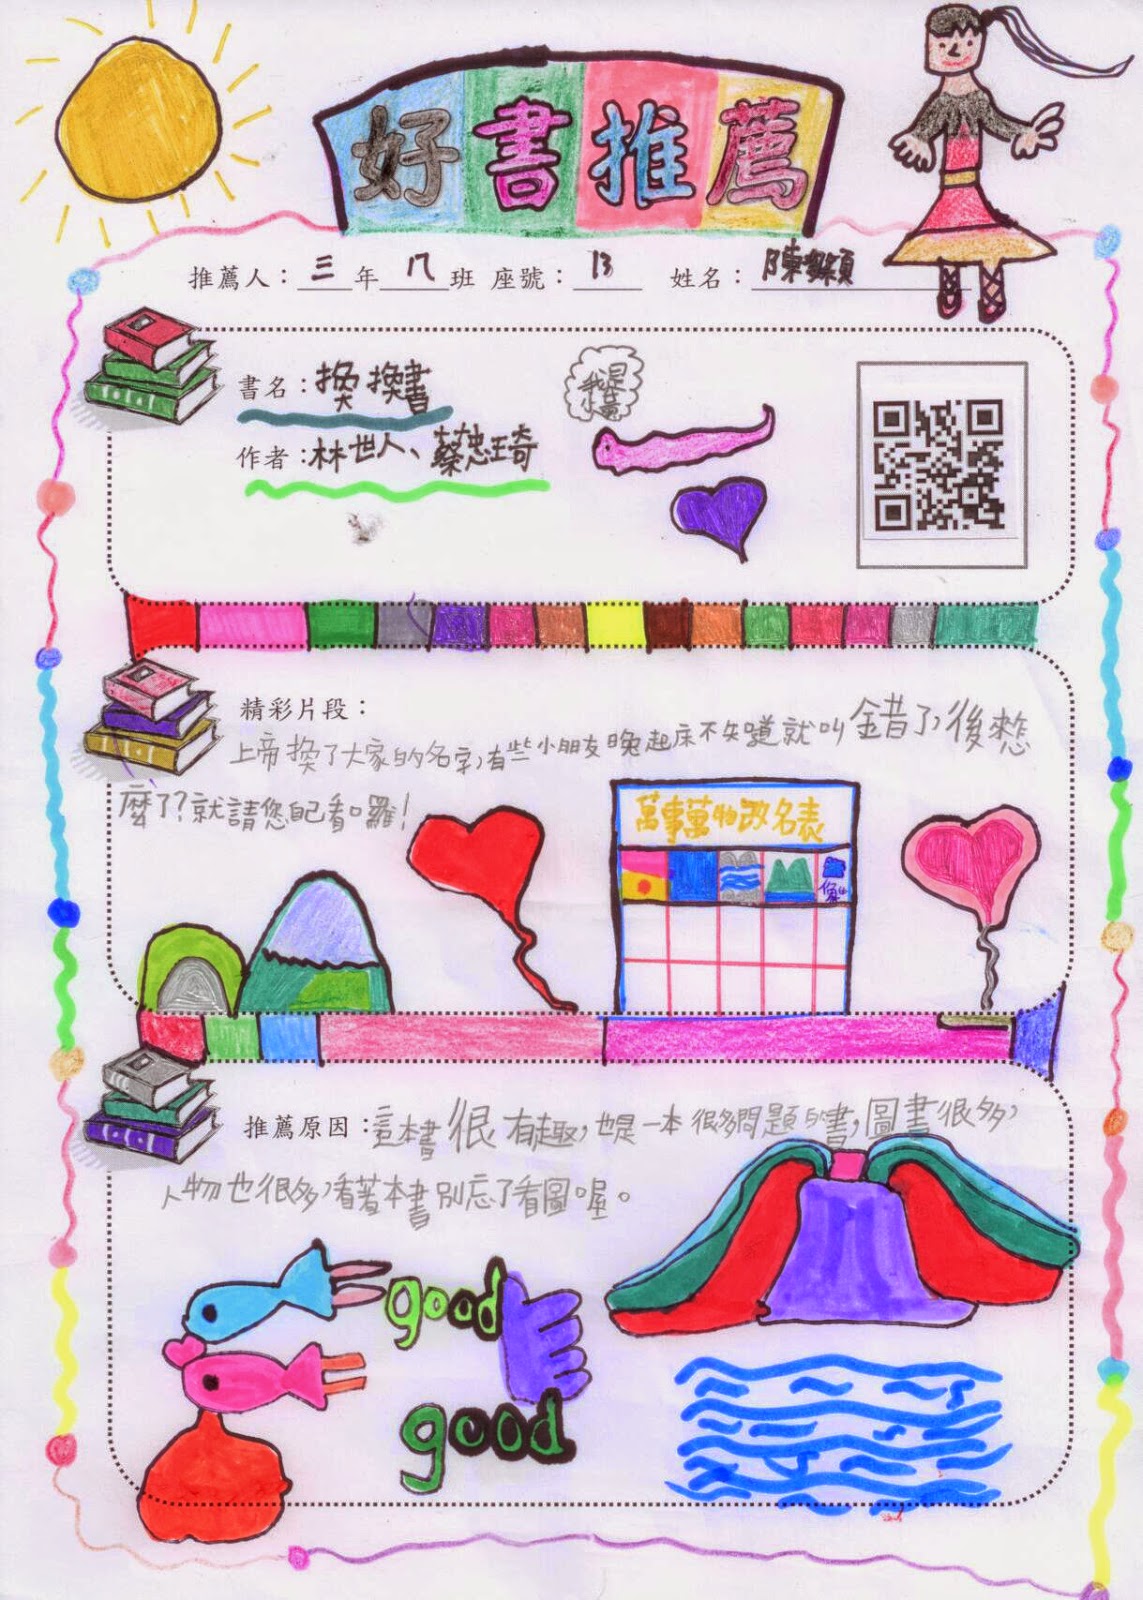 好書推薦
推薦人：三年17班 座號：13 姓名：陳
書名：換換書
作者：林世人、蔡忠琦
我是
小
精彩片段：
上帝換了大家的名字,有些小朋友晚起床不知道就叫錯了,後來怎
麼了?就請您自己看囉!
萬事萬物改名表
推薦原因：這本書很有趣,也是一本很多問題的書,圖書很多,
人物也很多,看著本書別忘了看圖喔。
good
good